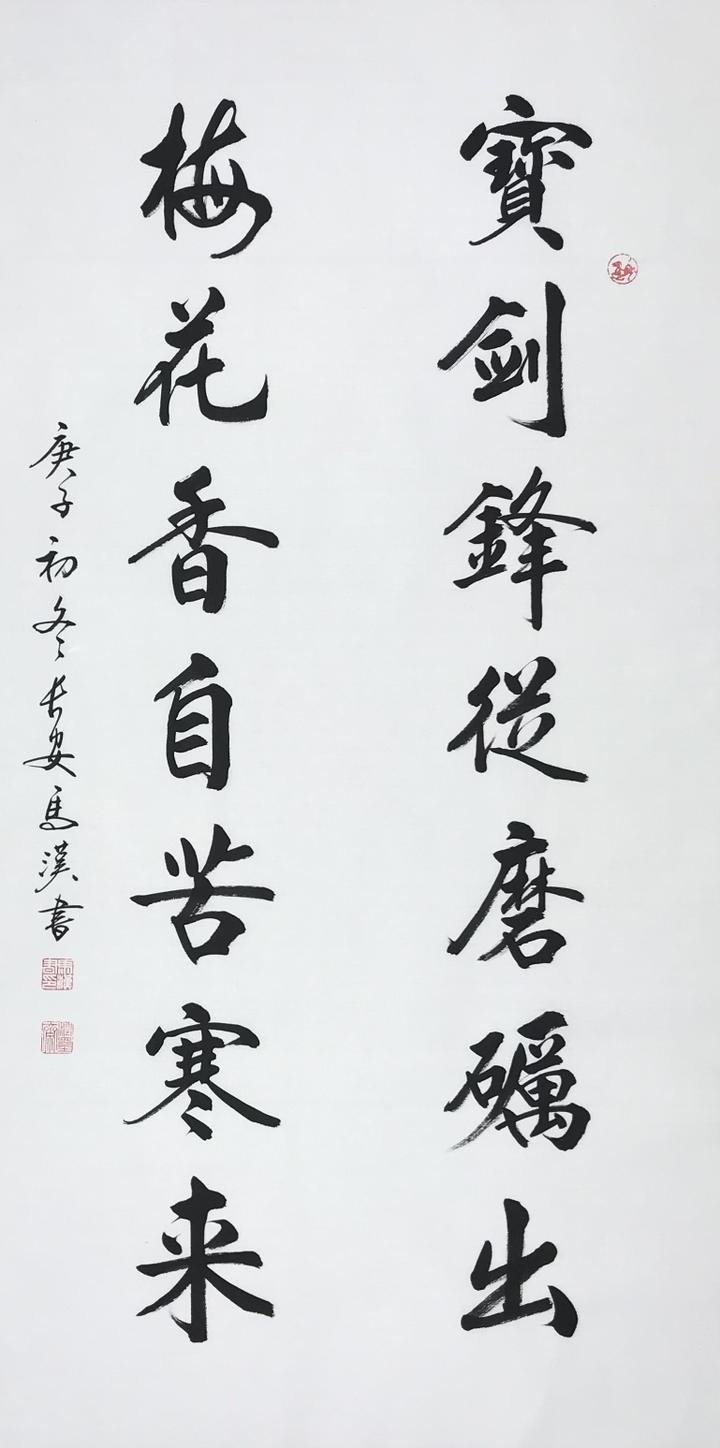 寶劍鋒從磨礪出
梅花香自苦寒来
庚子初冬长安馬漢書